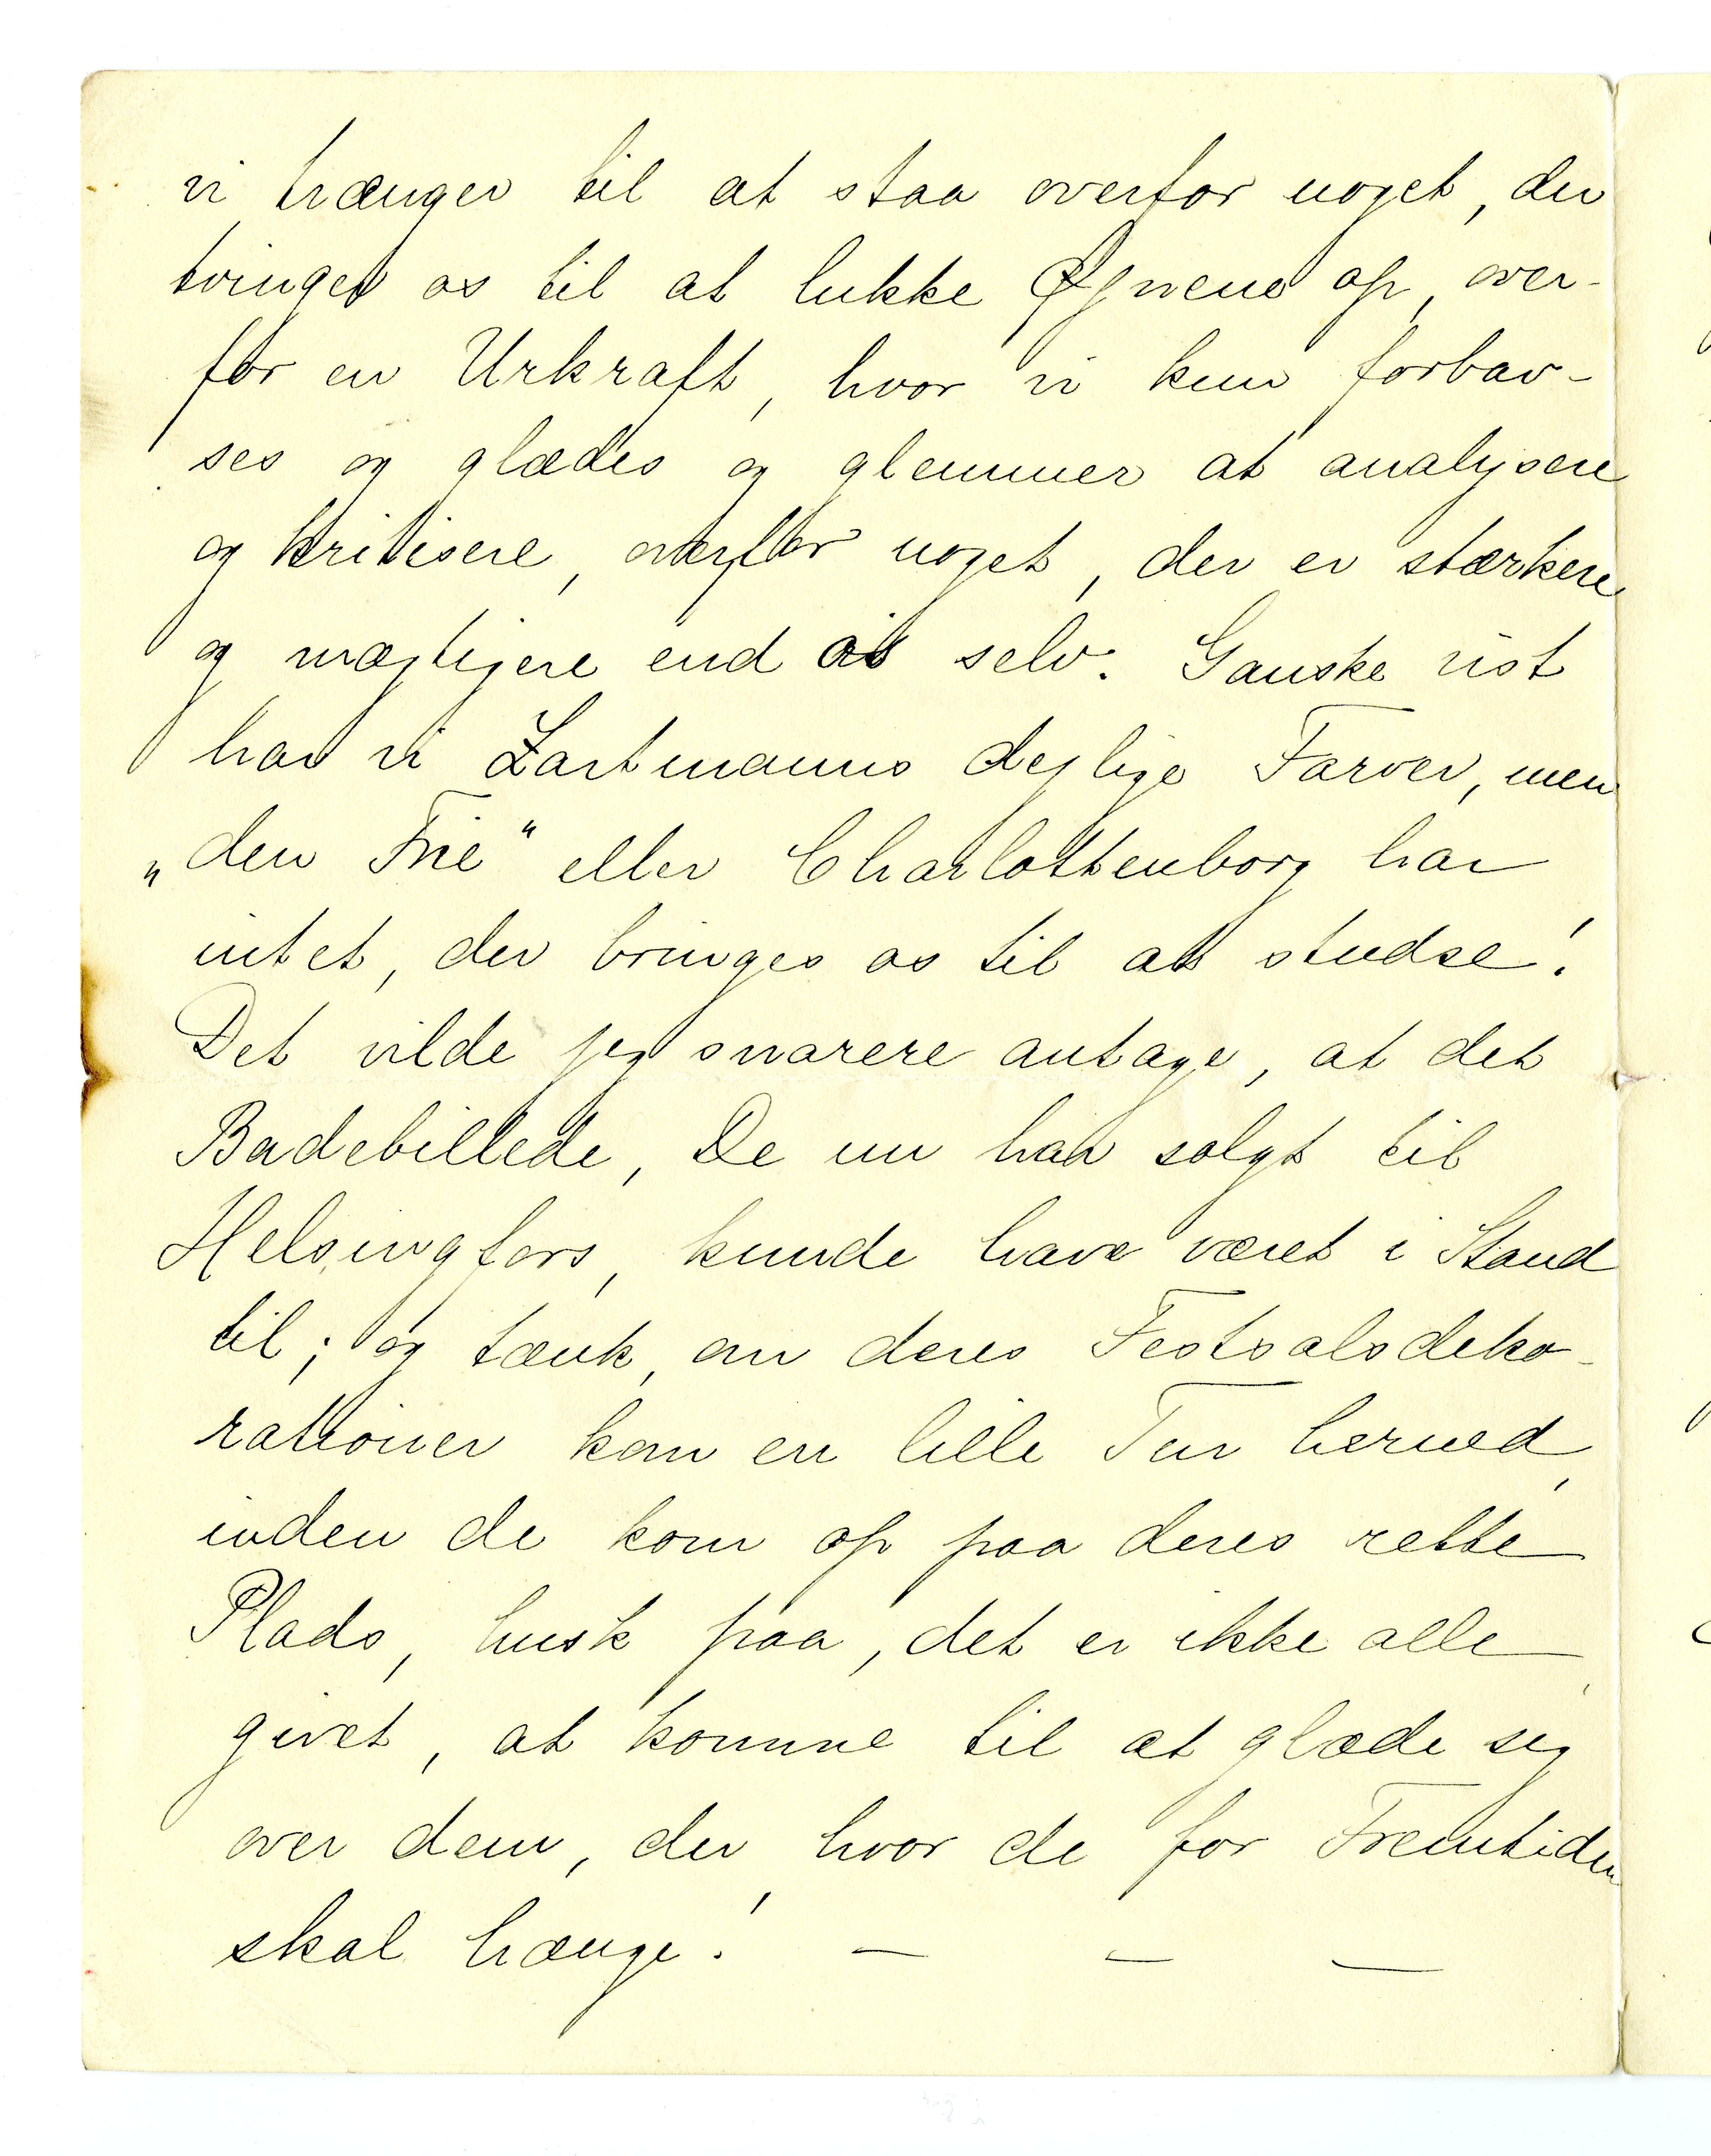 vi trænger til at staa overfor noget, der
tvinger os til at lukke Øjnene op, over-
for en Urkraft, hvor vi kun forbav-
ses og glædes og glemmer at analysere
og kritisere, overfor noget, der er stærkere
og mægtigere end os selv. Ganske vist
har vi Zartmanns dejlige Farver, men
„den Frie" eller Charlottenborg har
intet, der bringer os til at studse!
Det vilde jeg snarere antage, at det
Badebillede, De nu har solgt til
Helsingfors, kunde have været i Stand
til; og tænk, om deres Festsalsdeko-
rationer kom en lille Tur herned,
inden de kom op paa deres rette
Plads, husk paa, det er ikke alle
givet, at komme til at glæde sig
over dem, der, hvor de for Fremtiden
skal hænge! — — —